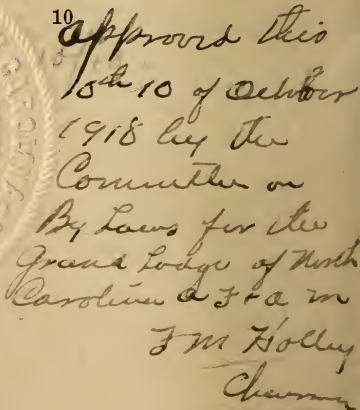 10
Approved this
10th 10 of October
1918 by the
Committee on
By Laws for the
Grand Lodge of North
Carolina A F & A M
F M Holley
Chairman